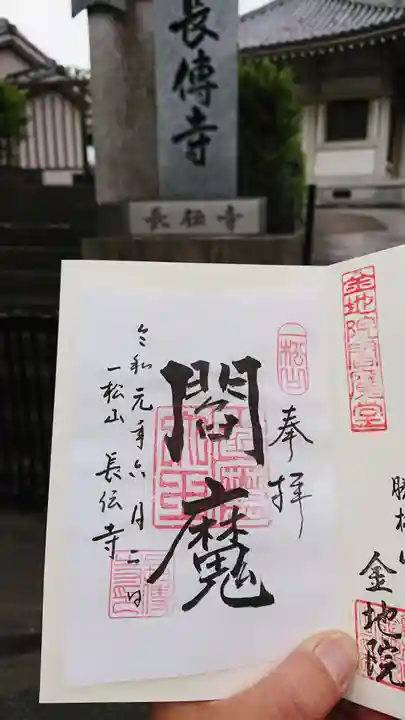 長傳寺
長伝寺
一松山
奉拝
閻魔
令和元年六月二日
一松山 長伝寺
金地院閻魔堂
勝林山
金地院